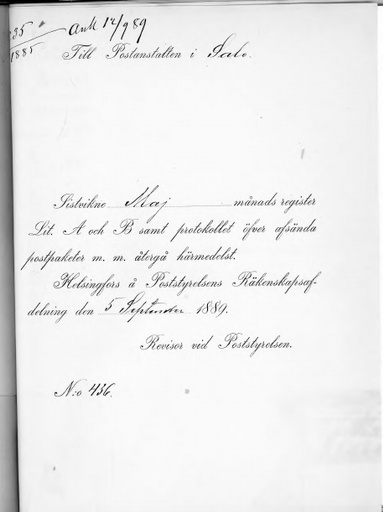 35
1885
Ank 12/9 89
Till Postanstalten i Salo.
Sistvikne Maj månads register
Lit. A och B samt protokollet öfver afsända
postpaketer m. m. återgå härmedelst.
Helsingfors å Poststyrelsens Räkenskapsaf-
delning den 5 September 1889.
Revisor vid Poststyrelsen.
N:o 436.